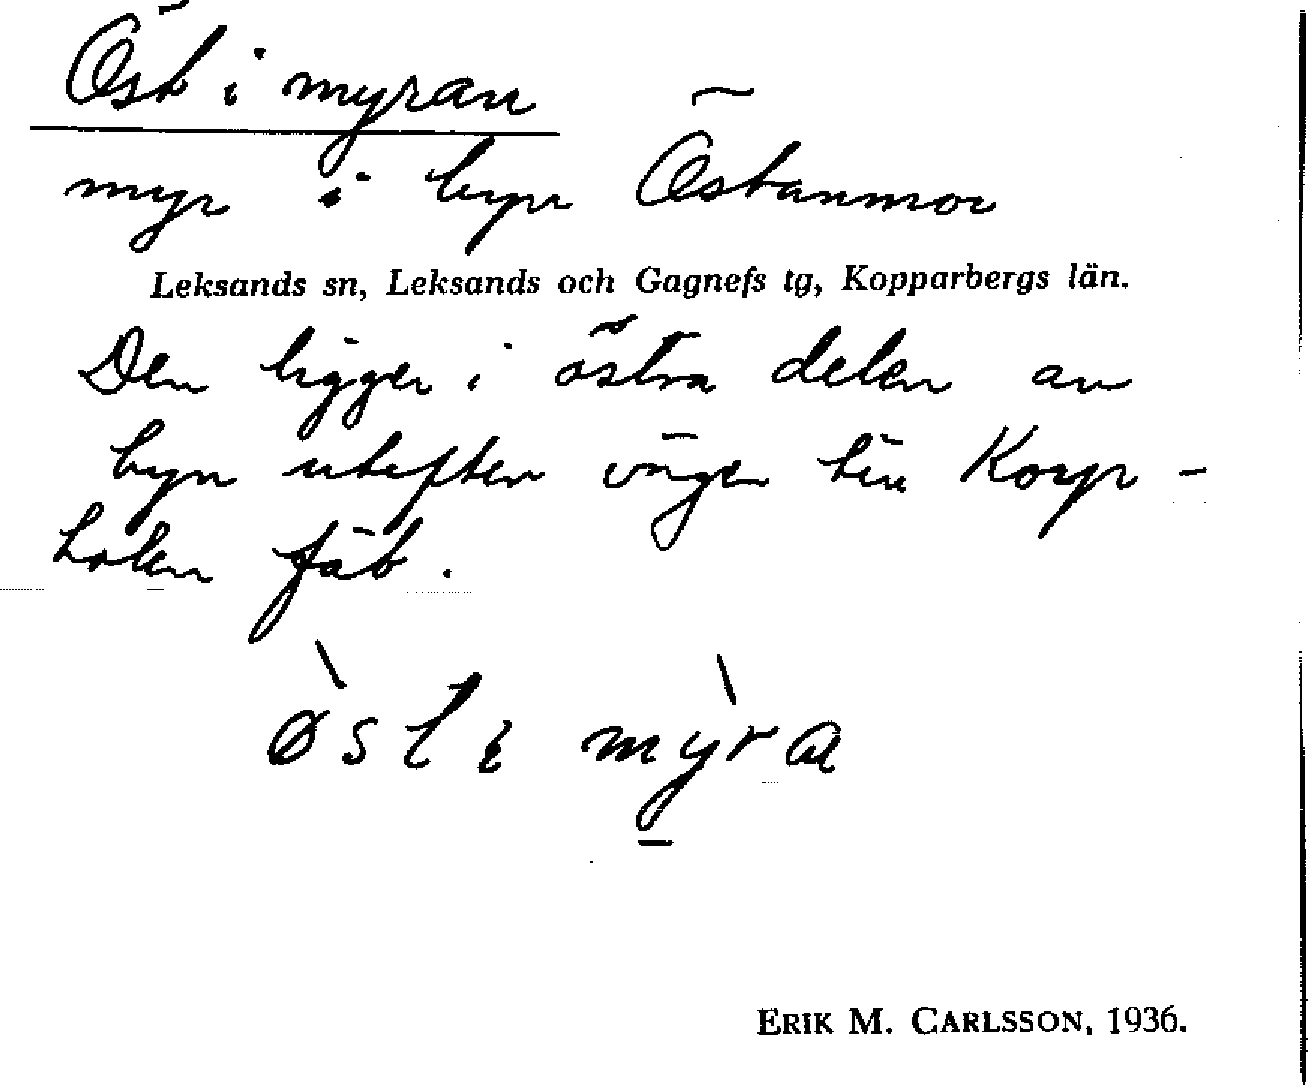 Öst i myran
myr i byn Östanmor
Leksands sn, Leksands och Gagnefs tg, Kopparbergs län.
Den ligger i östra delen av
byn utefter vägen till Korp-
holen fäb.
ə̀st i mỳ̠ra
ERIK M. CARLSSON, 1936.